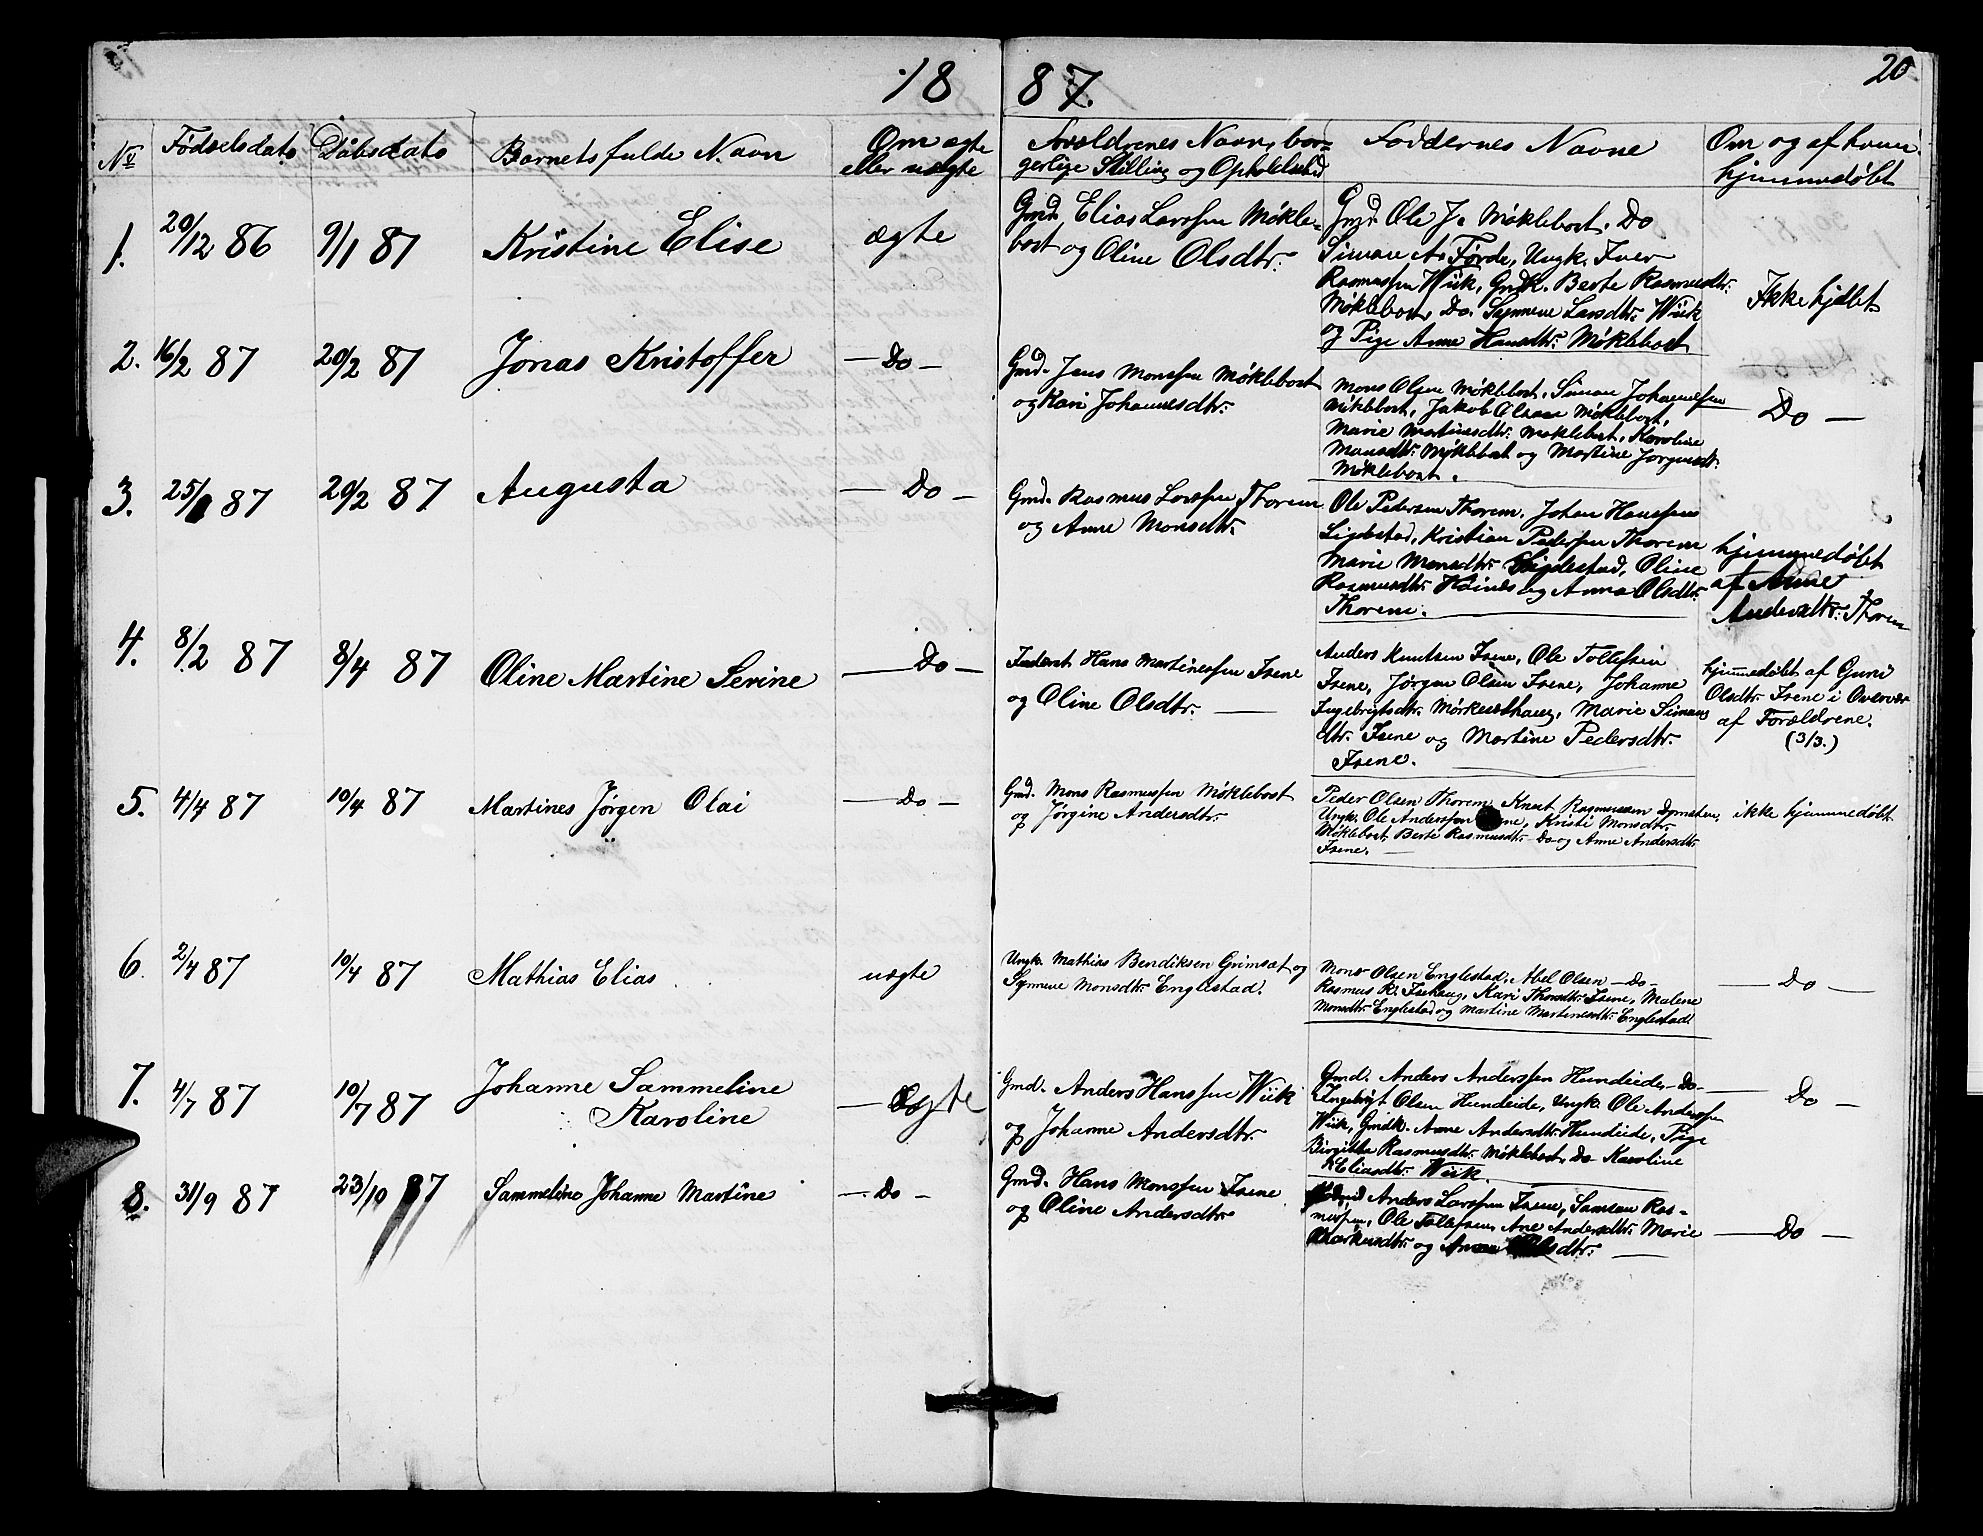 1887.
20
Nº Fødselsdato Dåbsdato Barnets fulde Navn Om ægte eller uægte Forældrenes Navn, borgerlige Stilling og Opholdssted Faddernes Navne Om og af hvem hjemmedøbt
1. 29/12 86 9/1 87 Kristine Elise ægte
Gmd. Elias Larssen Møkle-
bost og Oline Olsdtr.
Gmd. Ole J. Møklebost. Do
Simon A. Førde, Ungk. Iver
Rasmussen Wiik, Gmdk. Berte Rasmusdtr.
Møklebost, Do. Synneve Larsdtr. Wiik
og Pige Anne Hansdtr. Møklebost
Ikke hjdøbt
2. 16/2 87 20/2 87 Jonas Kristoffer — Do —
Gmd. Jens Monssen Møklebost
og Kari Johannesdtr.
Mons Olsen Møklebost, Simon Johannessen
Møklebost, Jakob Olsen Møklebost,
Marie Martinesdtr. Møklebost, Karoline
Monsdtr. Møklebost og Martine Jørgensdt.
Møklebost.
Do —
3. 25/1 87 20/2 87 Augusta — Do —
Gmd. Rasmus Larssen Thorem
og Anne Monsdtr.
Ole Pedersen Thorem, Johan Hanssen
Ligdestad, Kristian Pedersen Thorem
Marie Monsdtr. Ligdestad, Oline
Rasmusdtr. Høines og Anna Olsdtr.
Thorem.
hjemmedøbt
af Anne
Andersdtr. Thorem
4. 8/2 87 8/4 87 Oline Martine Serine — Do —
Inderst Hans Martinessen Isene
og Oline Olsdtr. —
Anders Knutsen Isene, Ole Tollefsen
Isene, Jørgen Olsen Isene, Johanne
Ingebrigtsdtr. Mørkesthaug, Marie Simons
dtr. Isene og Martine Pedersdtr.
Isene.
hjemmedøbt af Guri
Olsdtr. Isene i Overvær
af Forældrene.
(3/3.)
5. 4/4 87 10/4 87 Martines Jørgen Olai — Do —
Gmd. Mons Rasmussen Møklebost
og Jørgine Andersdtr.
Peder Olsen Thorem, Knut Rasmussen
Ungk. Ole Anderssen Isene, Kristi Monsdtr.
Møklebost, Berte Rasmusdtr. — Do — og Anne Andersdtr.
Isene.
ikke hjemmedøbt
6. 2/4 87 10/4 87 Mathias Elias uægte
Ungk. Mathias Bendiksen Grimsæt og
Synneve Monsdtr. Englestad.
Mons Olsen Englestad, Abel Olsen — Do —
Rasmus R. Isehaug, Kari Thorsdtr. Isene, Malene
Monsdtr. Englestad og Martine Martinesdtr. Englestad.
— Do —
7. 4/7 87 10/7 87 Johanne Sammeline
Karoline — ægte
Gmd. Anders Hanssen Wiik
og Johanne Andersdtr.
Gmd. Anders Anderssen Hundeide — Do —
Ingebrigt Olsen Hundeide, Ungk. Ole Anderssen
Wiik, Gmdk. Anne Andersdtr. Hundeide, Pige
Birgithe Rasmusdtr. Møklebost, Do Karoline
Eliasdtr. Wiik.
Do —
8. 31/9 87 23/10 87 Sammeline Johanne Martine — Do —
Gmd. Hans Monssen Isene
og Oline Andersdtr.
Gmd. Anders Larssen Isene, Samson Ras-
mussen, Ole Tollefsen, Ane Andersdtr. Marie
Markusdtr. og Anne Olsdtr. —
— Do —